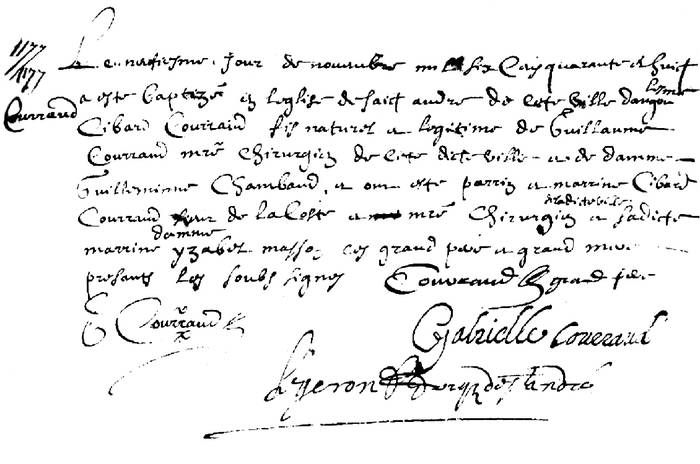 1177
1177
Courraud
Le neufiesme Jour de novembre mil six Cens quarante et huict
a este baptizé en leglise de sainct andre de ceste ville dangou
lesme
Cibard Courraud fils naturel et legitime de Guillaume
Courraud mre Chirurgien de ceste dicte ville et de damme
Guilleminne Chambaud, et ont este parrin et marrine Cibard
Courraud sieur de la Coste et mre Chirurgien et sadicte
damme
marrine yzabel masson ces grand pere et grand mere
presants les soubs signes Courraud grand pere
G Courraud
Gabrielle Courraud